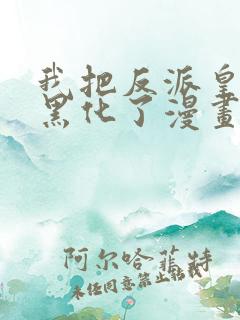 我把反派皇
黑化了漫畫
阿尔哈菲特
未经同意禁止转载